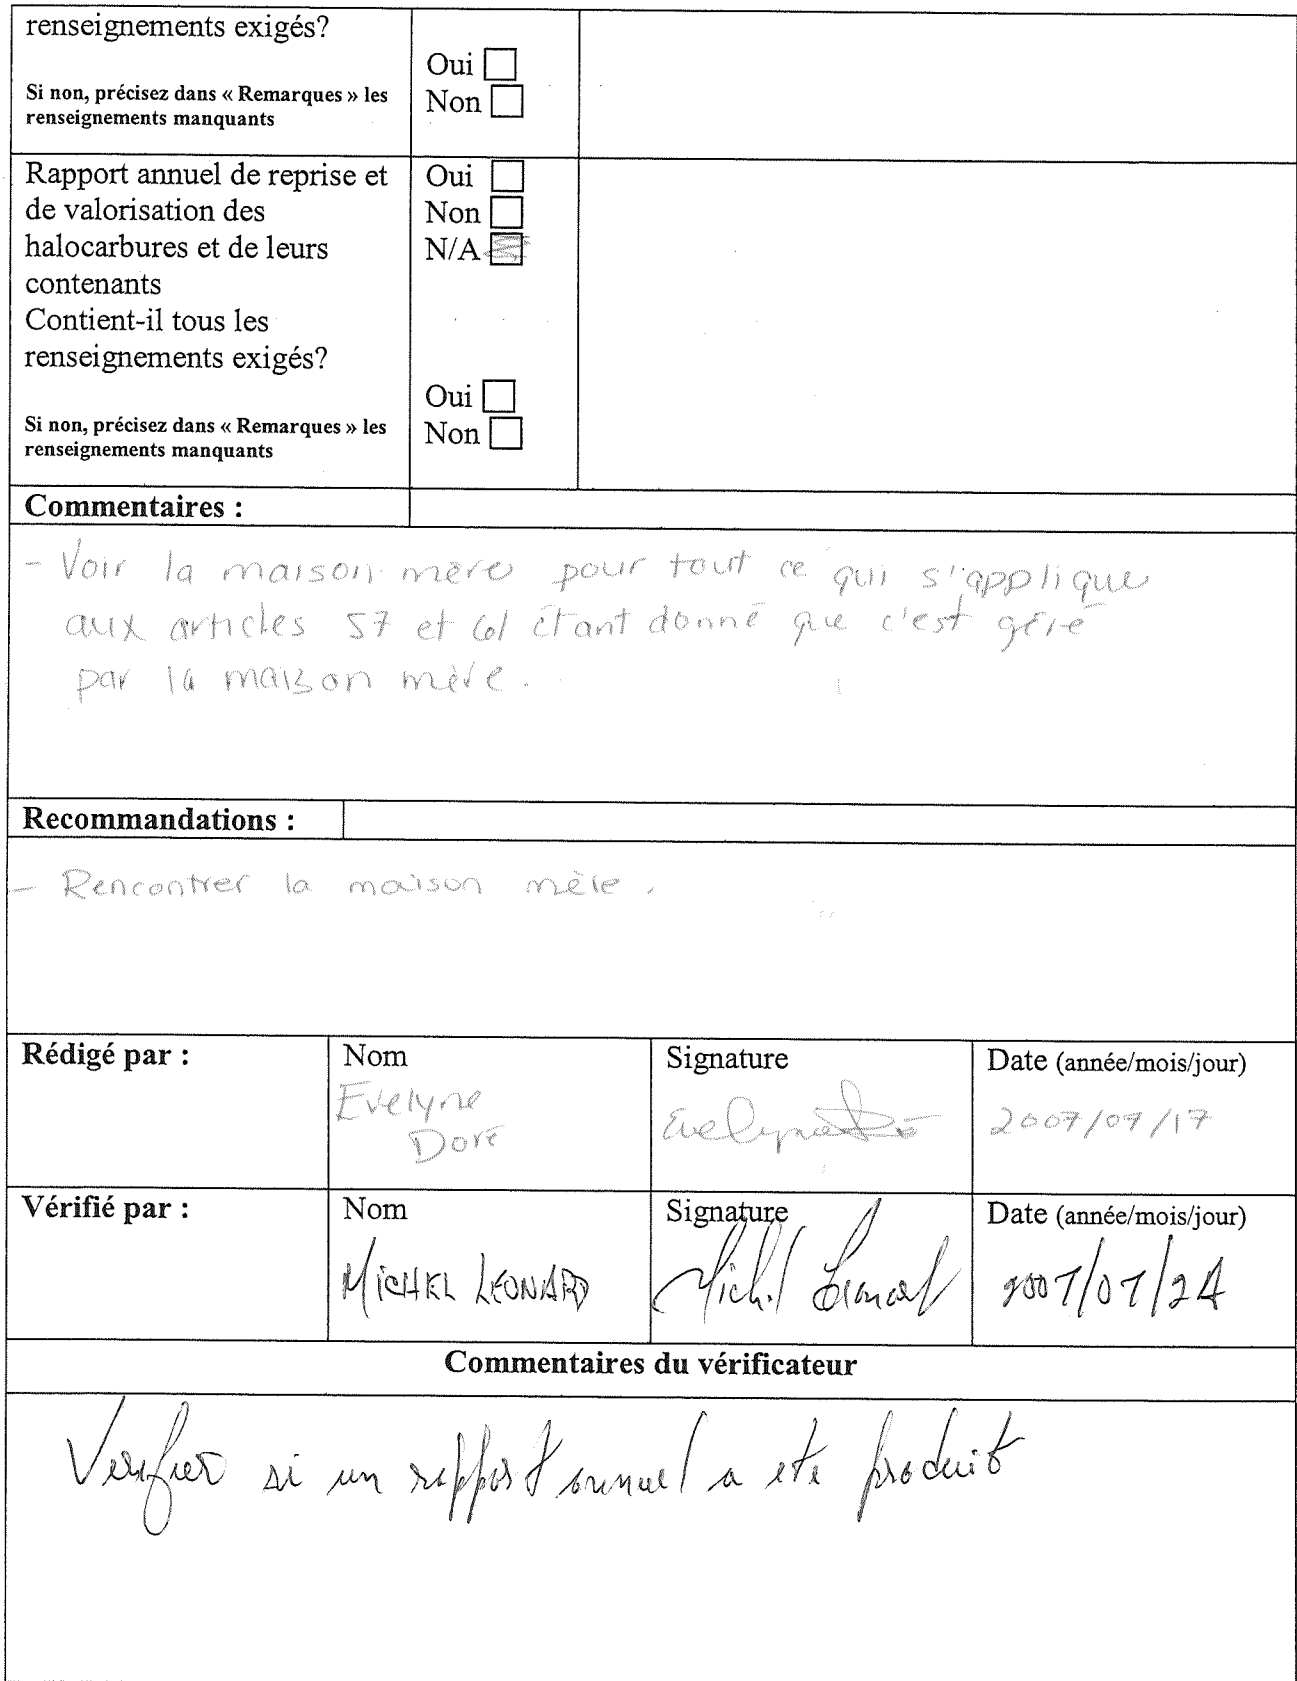 renseignements exigés?
Oui
Si non, précisez dans « Remarques » les
Non
renseignements manquants
Rapport annuel de reprise et
Oui
de valorisation des
Non
halocarbures et de leurs
N/A
contenants
Contient-il tous les
renseignements exigés?
Oui
Si non, précisez dans « Remarques » les
Non
renseignements manquants
Commentaires :
- Voir la maison mère pour tout ce qui s'applique
aux articles 57 et 61 étant donné que c'est géré
par la maison mère.
Recommandations :
- Rencontrer la maison mère.
Rédigé par :
Nom
Signature
Date (année/mois/jour)
Evelyne
Doré
Evelyne Doré
2007/07/17
Vérifié par :
Nom
Signature
Date (année/mois/jour)
MICHEL LEONARD
Michel Leonard
2007/07/24
Commentaires du vérificateur
Verifier si un rapport annuel a ete produit